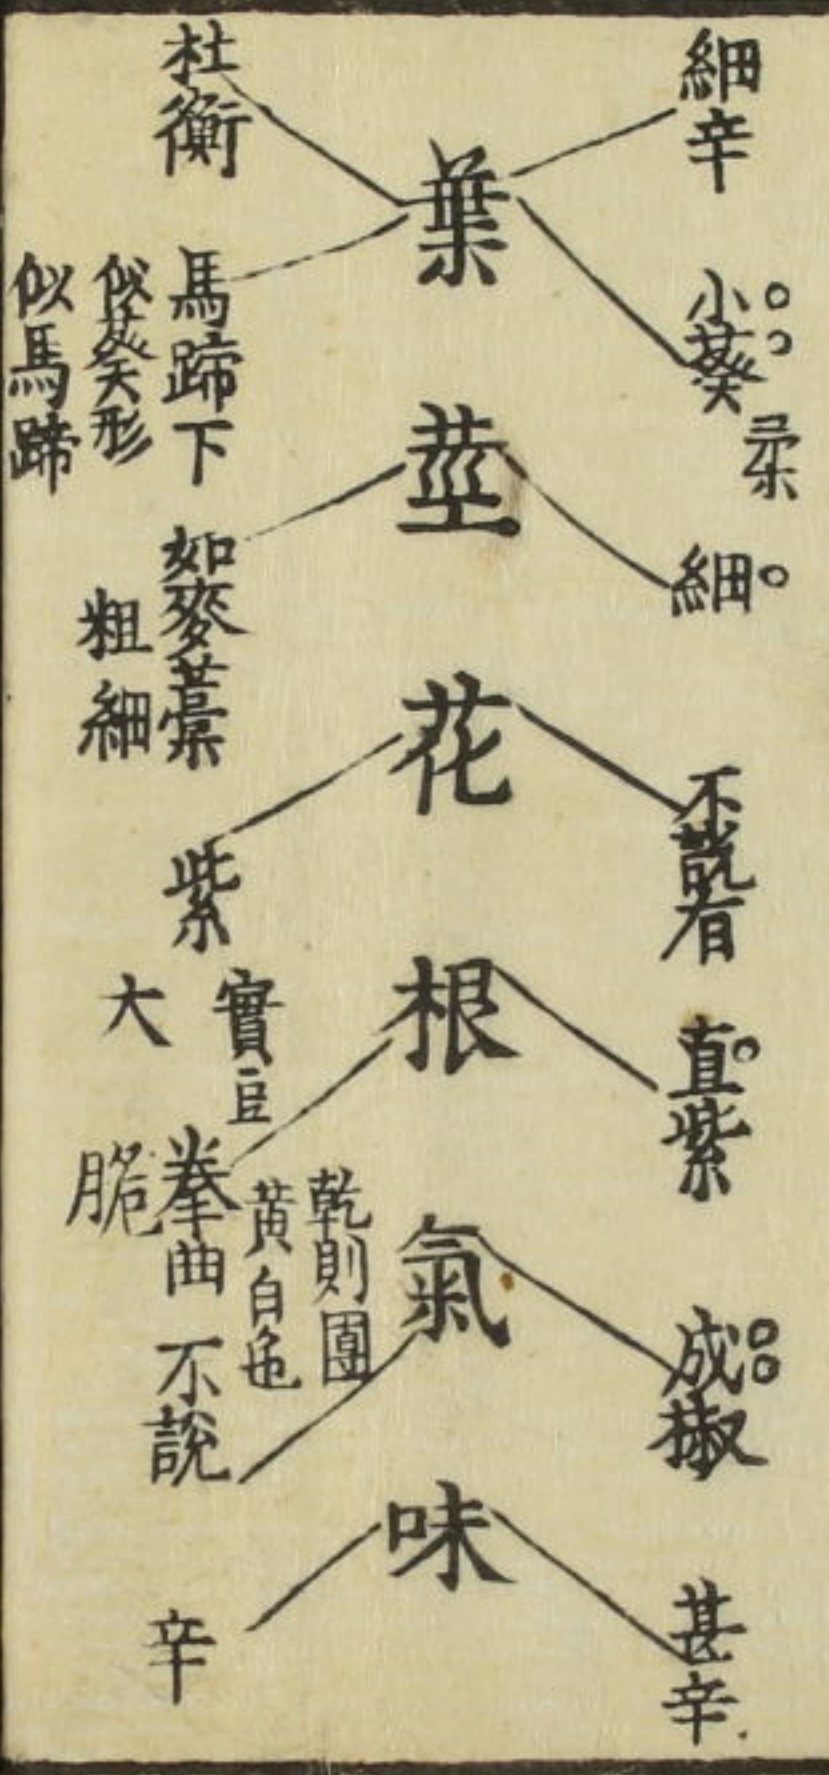 細辛
小葵
柔
細
不説有
直紫
成椒
甚辛
葉
莖
花
根
氣
味
杜衡
馬蹄下
似葵形
似馬蹄
如麥藁
粗細
紫
實豆
大
拳曲
脆
乾則團
黄白色
不說
辛